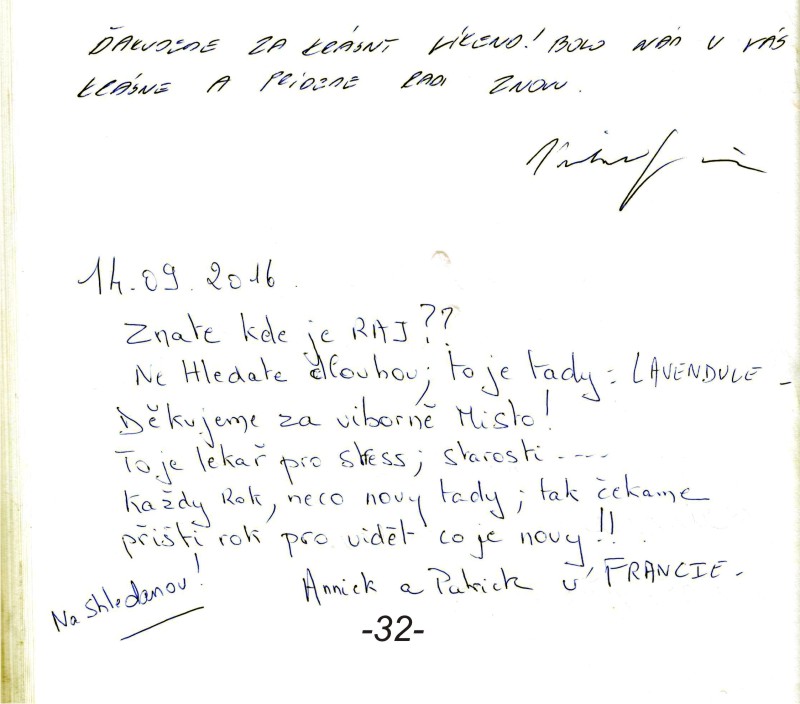 ĎAKUJEME ZA KRÁSNY VÍKEND! BOLO NÁM U VÁS
KRÁSNE A PRÍDEME RADI ZNOVU.
14.09.2016.
Znate kde je RAJ??
Ne Hledate dlouhou; to je tady: LAVENDULE -
Děkujeme za viborně Misto!
To je lékař pro stress; starosti ----
Každy Rok, neco novy tady; tak čekame
přišti rok pro vidět co je novy!!
Annick a Patrick v FRANCIE.
Na shledanou!
-32-